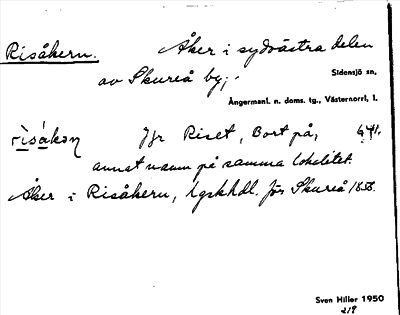 Risåkern. Åker i sydvästra delen
av Skureå by;.
Sidensjö sn,
Ångermanl. n. doms. lg., Västernorrl. l.
rìsákən Jfr Riset, Bort på,
annat namn på samma lokalitet.
Åker i Risåkern, lgskhdl. förs Skureå 1858.
Sven Hiller 1950
219